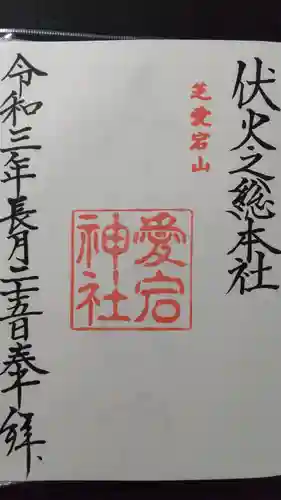 伏火之総本社
芝愛宕山
愛宕神社
令和三年長月二十五日奉拝